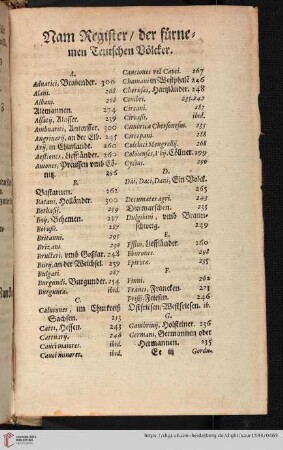 Nam Register/ der fürne-
men Teutschen Völcker.
A.
Aduatici, Brabender. 306
Alani. 268
Albani. 268
Alemannen. 274
Alsatij, Elsasser. 239
Ambuariti, Antorffer. 300
Angrivarij, an der Elb. 245
Arij, in Churlande. 260
Aestiones, Lieffländer. 262
Auiones, Preussen vmb Cö-
nitz. 256
B.
Bastarnen. 262
Bataui, Holländer. 300
Boy, Behemen. 237
Borussi. 287
Britanni. 295
Britzani. 259
Bructeri, vmb Goßlar. 248
Burij, an der Weichsel. 259
Bulgari. 287
Burgundi, Burgunder. 254
Burgundia. ibid.
C.
Calucones, im Churkreiß
Sachsen. 213
Catti, Hessen. 243
Cattuarij. 246
Cauci maiores. ibid.
Cauci minores. ibid.
Cantones vel Catti. 267
Chamaui in Westphalē 246
Charudes, Hartzländer. 248
Cimbri. 233.247
Circasi. 287
Circassi. ibid.
Cimbrica Chersonesus. 233
Cirrepani. 258
Colduci
Coldiani, Vbij, Cöllner. 299
Osani. 290
D.
Daci, Dani, Ein Volck.
265
Decumates agri. 203
Diomarschen. 235
Dulgibini, vmb Braun-
schweig. 239
E.
Estiui, Lieffländer. 260
Eburones. 298
Epiroti. 235
F.
Finni. 262
Franci, Francken 273
Frisij, Friesen. 246
Ostfriesen/ Westfriesen. ib.
G.
Gambriuij, Holsteiner. 236
Germani, Germannen oder
Hermannen. 235
Ee iij
https://digi.ub.uni-heidelberg.de/diglit/saur1593/0465